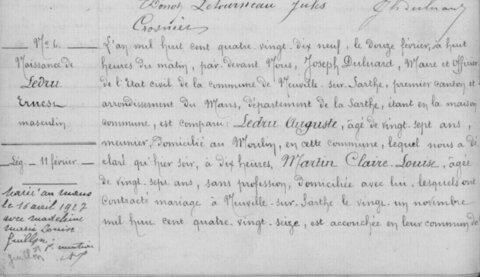 Benoît Letourneau Jules
Crosnier
J. Dulward
N° 6.
Naissance de
Ledru
Ernest
masculin
Lég. 11 février
Marié au mans
le 16 avril 1927
avec madeleine
marie Louise
Guillon
L'an mil huit cent quatre-vingt-dix neuf, le douze février, à huit
heures du matin, par-devant Nous, Joseph Dulward, Maire et Officier
de l'Etat civil de la commune de Neuville-sur-Sarthe, premier canton et
arrondissement du Mans, département de la Sarthe, étant en la maison
commune, est comparu Ledru Auguste, âgé de vingt-sept ans,
meunier, domicilié au Moulin, en cette commune, lequel nous a dé
claré qu'hier soir, à dix heures, Martin Claire-Louise, âgée
de vingt-sept ans, sans profession, domiciliée avec lui, lesquels ont
contracté mariage à Neuville-sur-Sarthe le vingt-un novembre
mil huit cent quatre-vingt-seize, est accouchée en leur commun do